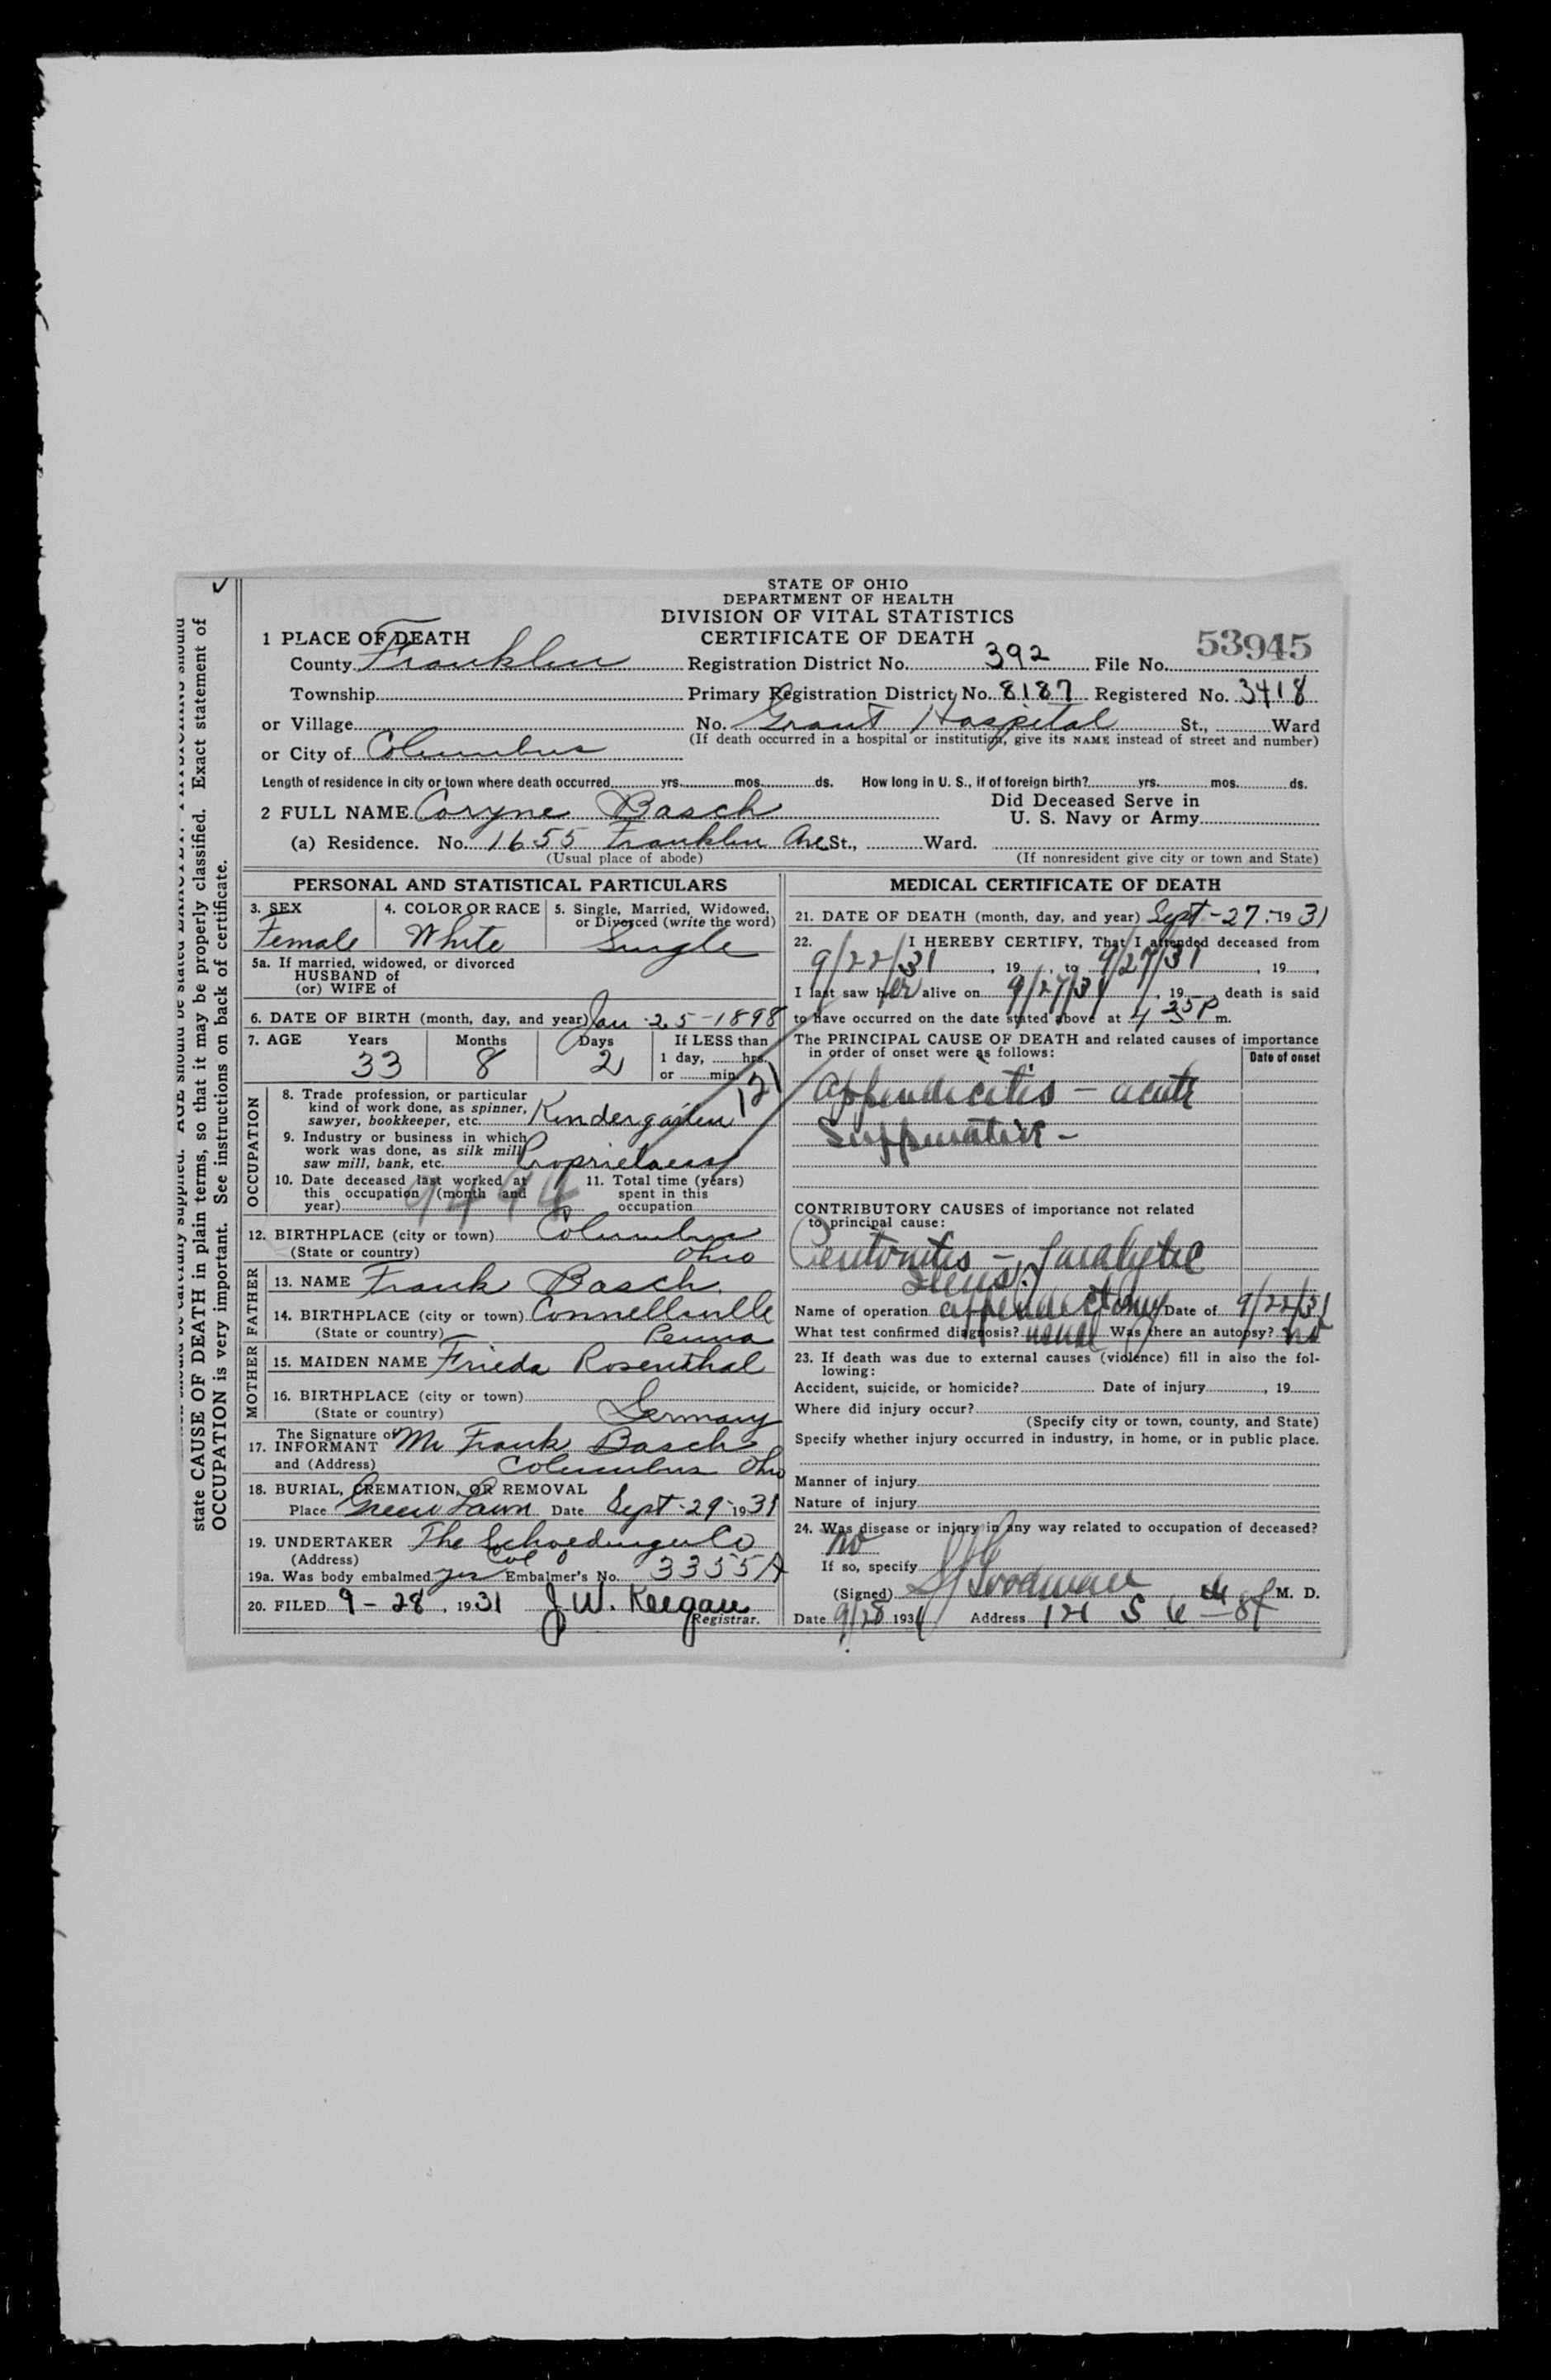 STATE OF OHIO
DEPARTMENT OF HEALTH
DIVISION OF VITAL STATISTICS
CERTIFICATE OF DEATH
53945
1 PLACE OF DEATH
County Franklin Registration District No. 392 File No.
Township Primary Registration District No. 8187 Registered No. 3418
or Village No. Grant Hospital St., Ward
or City of Columbus (If death occurred in a hospital or institution, give its NAME instead of street and number)
Length of residence in city or town where death occurred yrs. mos. ds. How long in U. S., if of foreign birth? yrs. mos. ds.
2 FULL NAME Coryne Basch Did Deceased Serve in U. S. Navy or Army
(a) Residence. No. 1655 Franklin Ave St., Ward.
(Usual place of abode) (If nonresident give city or town and State)
PERSONAL AND STATISTICAL PARTICULARS
3. SEX 4. COLOR OR RACE 5. Single, Married, Widowed, or Divorced (write the word)
Female White Single
5a. If married, widowed, or divorced
HUSBAND of
(or) WIFE of
6. DATE OF BIRTH (month, day, and year) Jan 25-1898
7. AGE Years Months Days If LESS than
33 8 2 1 day, hrs.
or min.
121
OCCUPATION
8. Trade profession, or particular
kind of work done, as spinner,
sawyer, bookkeeper, etc. Kindergarten
9. Industry or business in which
work was done, as silk mill
saw mill, bank, etc.
10. Date deceased last worked at
this occupation (month and
year)
11. Total time (years)
spent in this
occupation
9494
12. BIRTHPLACE (city or town) Columbus
(State or country) Ohio
FATHER
13. NAME Frank Basch
14. BIRTHPLACE (city or town) Connellsville
(State or country) Penna
MOTHER
15. MAIDEN NAME Frieda Rosenthal
16. BIRTHPLACE (city or town)
(State or country) Germany
The Signature of
17. INFORMANT Mr Frank Basch
and (Address) Columbus Ohio
18. BURIAL, CREMATION, OR REMOVAL
Place Green Lawn Date Sept-29-1931
19. UNDERTAKER The Schoedinger Co
(Address) Col O
19a. Was body embalmed yes Embalmer's No. 3355A
20. FILED 9-28, 1931 J. W. Keegan
Registrar.
MEDICAL CERTIFICATE OF DEATH
21. DATE OF DEATH (month, day, and year) Sept-27-1931
22. I HEREBY CERTIFY, That I attended deceased from
9/22/31, 19 to 9/27/31, 19
I last saw her alive on 9/27/31, 19 death is said
to have occurred on the date stated above at 4 35 P m.
The PRINCIPAL CAUSE OF DEATH and related causes of importance
in order of onset were as follows: Date of onset
Appendicitis - acute
Suppurative -
CONTRIBUTORY CAUSES of importance not related
to principal cause:
Peritonitis - Paralytic
Ileus.
Name of operation appendectomy Date of 9/22/31
What test confirmed diagnosis? usual Was there an autopsy? no
23. If death was due to external causes (violence) fill in also the following:
Accident, suicide, or homicide? Date of injury, 19
Where did injury occur?
(Specify city or town, county, and State)
Specify whether injury occurred in industry, in home, or in public place.
Manner of injury
Nature of injury
24. Was disease or injury in any way related to occupation of deceased?
no
If so, specify
(Signed) Goodman M. D.
Date 9/28 1931 Address 121 S 6th St
state CAUSE OF DEATH in plain terms, so that it may be properly classified. Exact statement of
OCCUPATION is very important. See instructions on back of certificate.